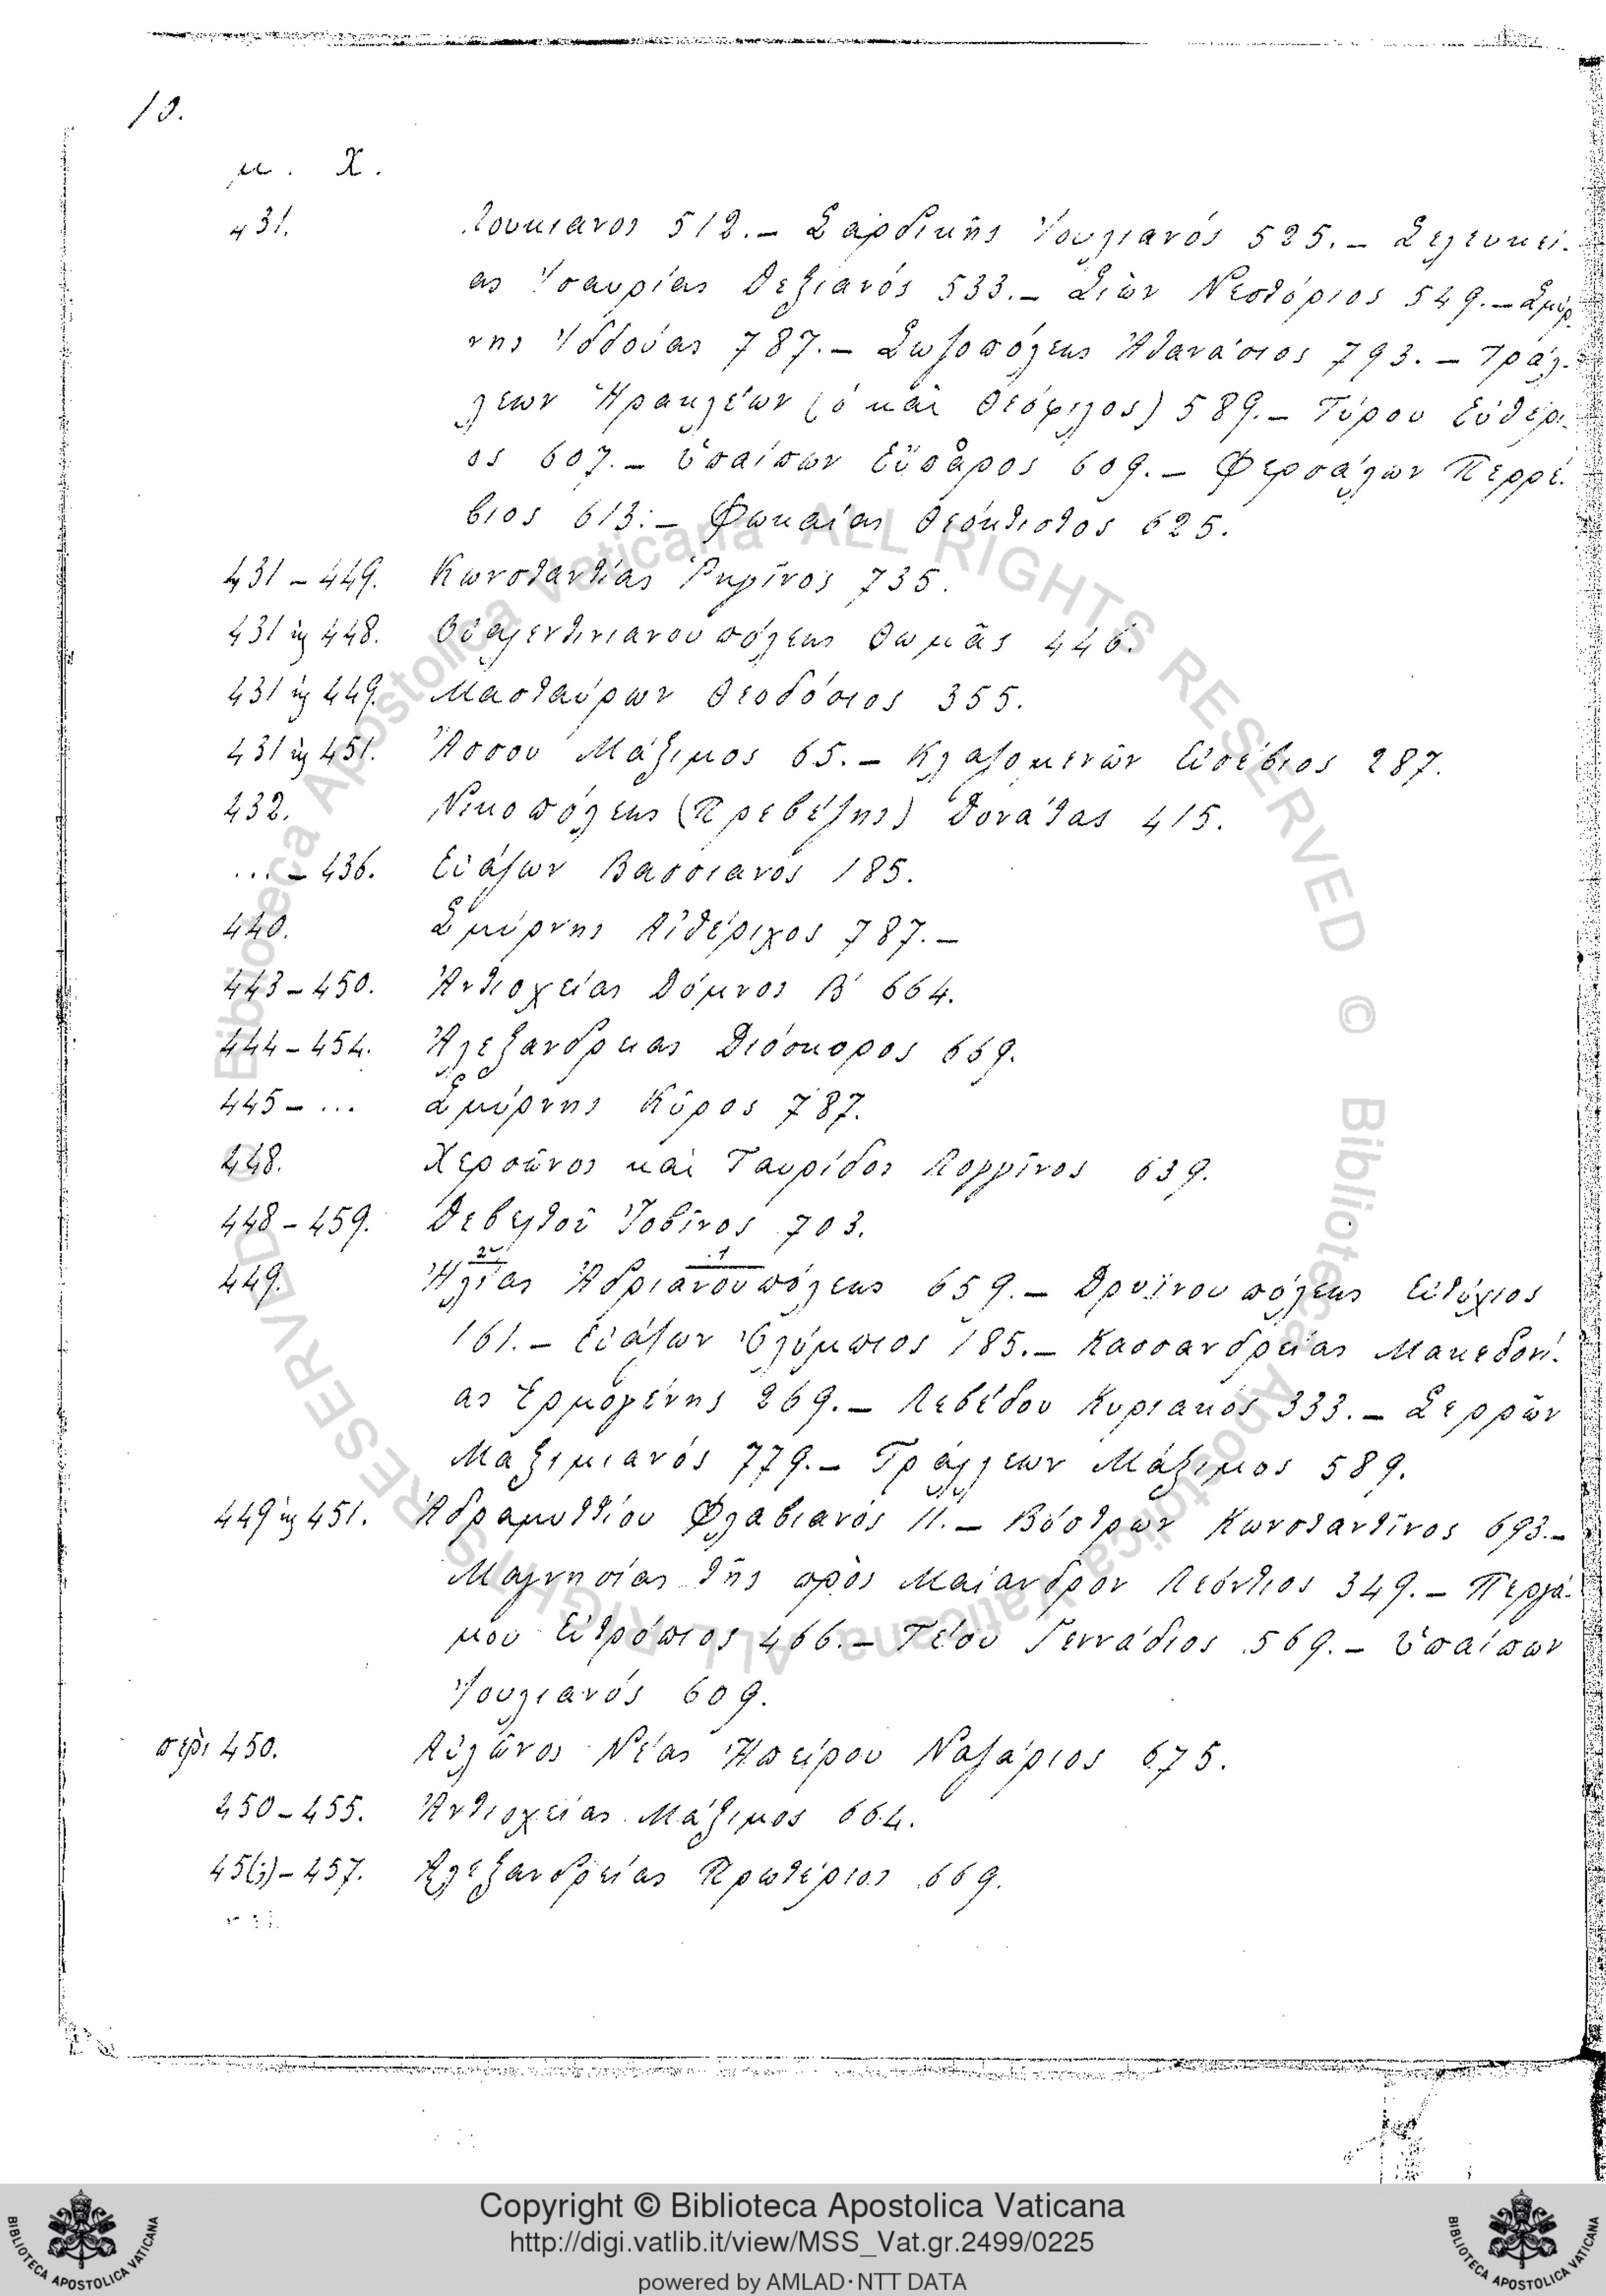 10.
μ. Χ.
431. Λουκιανος 512.— Σαρδικῆς Ἰουλιανός 525.— Σελευκεί-
ας Ἰσαυρίας Δεξιανός 533.— Σιὼν Νεστόριος 549.— Σμύρ-
νης Ἰδδούας 787.— Σωζοπόλεως Ἀθανάσιος 793.— Τράλ-
λεων Ἡρακλέων (ὁ καὶ Θεόφιλος) 589.— Τύρου Εὐθέρι-
ος 607.— Ὑπαίπων Εὔπορος 609.— Φερσάλων Περρέ-
βιος 613.— Φωκαίας Θεόκτιστος 625.
431–449. Κωνσταντίας Ῥηγῖνος 735.
431 κ 448. Οὐαλεντινιανουπόλεως Θωμᾶς 446.
431 κ 449. Μασταύρων Θεοδόσιος 355.
431 κ 451. Ἄσσου Μάξιμος 65.— Κλαζομενῶν Εὐσέβιος 287.
432. Νικοπόλεως (Πρεβέζης) Δονάτας 415.
...–436. Εὐάζων Βασσιανός 185.
440. Σμύρνης Αἰθέριχος 787.—
443–450. Ἀντιοχείας Δόμνος Β′ 664.
444–454. Ἀλεξανδρειας Διόσκορος 669.
445–... Σμύρνης Κῦρος 787.
448. Χερσῶνος καὶ Ταυρίδος Λογγῖνος 639.
448–459. Δεβελτοῦ Ἰοβῖνος 703.
2 1
449. Ἠλίας Ἀδριανουπόλεως 659.— Δρυϊνουπόλεως Εὐτύχιος
161.— Εὐάζων Ὀλύμπιος 185.— Κασσανδρείας Μακεδονί-
ας Ἑρμογένης 269.— Λεβέδου Κυριακός 333.— Σερρῶν
Μαξιμιανός 779.— Τράλλεων Μάξιμος 589.
449 κ 451. Ἀδραμυττίου Φλαβιανός 11.— Βόστρων Κωνσταντῖνος 693.—
Μαγνησίας τῆς πρὸς Μαίανδρον Λεόντιος 349.— Περγά-
μου Εὐτρόπιος 466.— Τέου Γεννάδιος 569.— Ὑπαίπων
Ἰουλιανός 609.
περὶ 450. Αὐλῶνος Νέας Ἠπείρου Ναζάριος 675.
450–455. Ἀντιοχείας Μάξιμος 664.
45(;)–457. Ἀλεξανδρείας Πρωτέριος 669.
Copyright © Biblioteca Apostolica Vaticana
http://digi.vatlib.it/view/MSS_Vat.gr.2499/0225
powered by AMLAD·NTT DATA